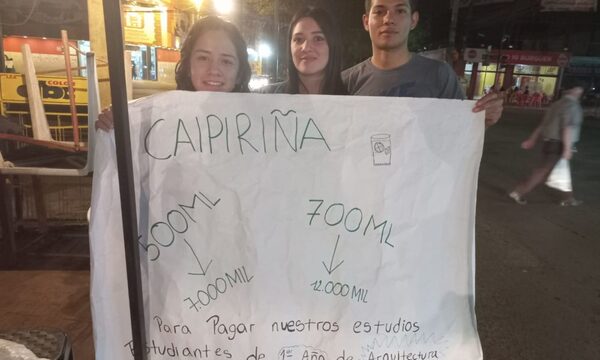 CAIPIRIÑA
500ML
700ML
7.000MIL
12.000MIL
Para Pagar nuestros estudios
Estudiantes de 1er Año de Arquitectura